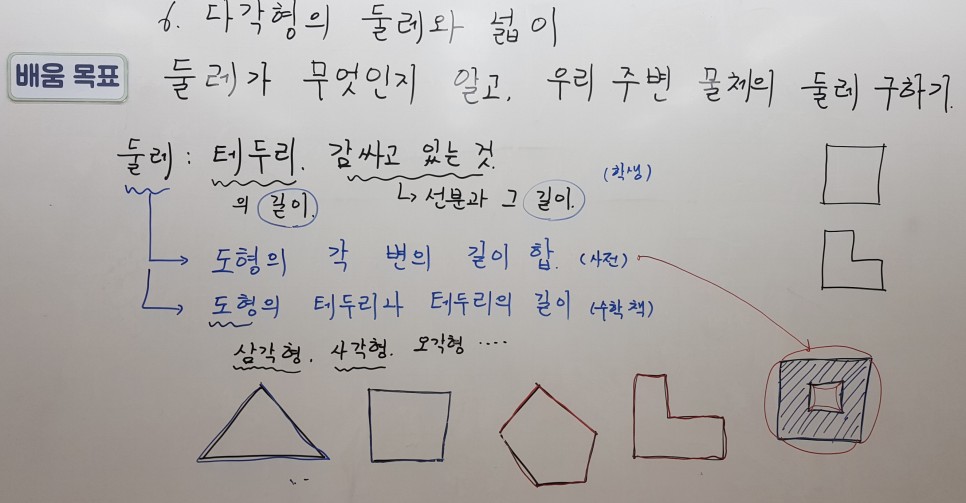 6. 다각형의 둘레와 넓이
배움 목표
둘레가 무엇인지 알고, 우리 주변 물체의 둘레 구하기.
둘레 : 테두리. 감싸고 있는 것.
(학생)
의 길이. ↳ 선분과 그 길이.
→ 도형의 각 변의 길이 합. (사전)
→ 도형의 테두리나 테두리의 길이 (수학책)
삼각형. 사각형. 오각형 ····